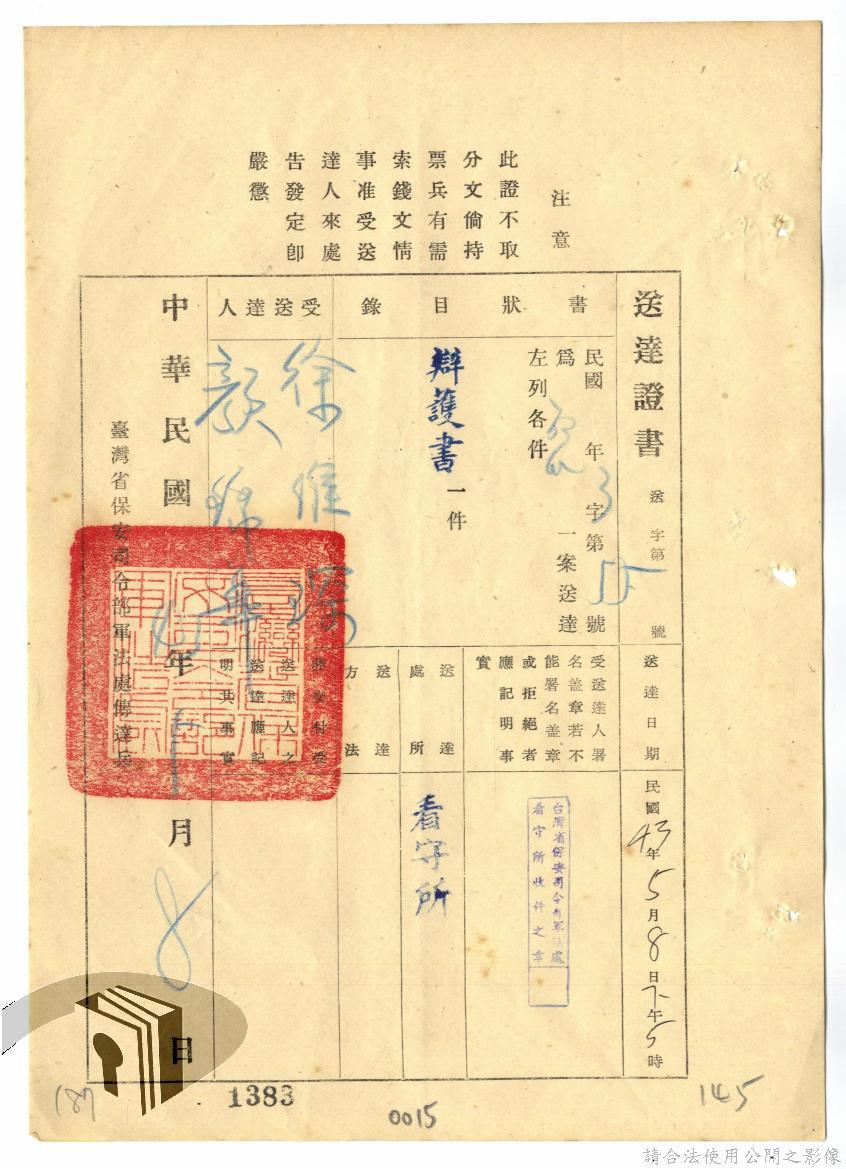 注意
此證不取
分文倘持
票兵有需
索錢文情
事准受送
達人來處
告發定卽
嚴懲
送達證書
送字第 號
送達日期
民國43年5月8日下午5時
書狀目錄
民國 年 字第 號
為 一案送達
左列各件
辯護書一件
受送達人署
名盖章若不
能署名盖章
或拒絕者
應記明事
實
台灣省保安司令部軍法處
看守所收件之章
送達處所
看守所
送達方法
受送達人
徐維琛
顏錦華
將交付受
送達人之
送達應記
明其事實
中華民國43年5月8日
臺灣省保安司令部軍法處傳達兵
187
1383
0015
145
請合法使用公開之影像